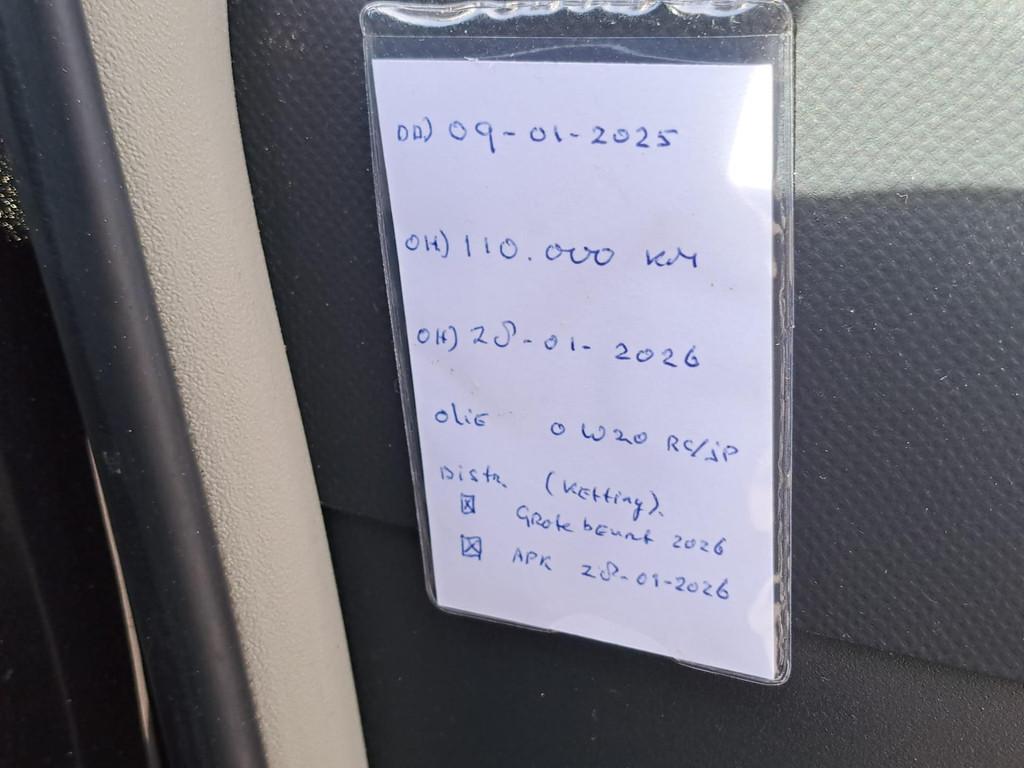 DD) 09-01-2025
OH) 110.000 KM
OH) 28-01-2026
OLIE 0W20 RC/JP
Distr. (Ketting).
☒ Grote beurt 2026
☒ APK 28-01-2026